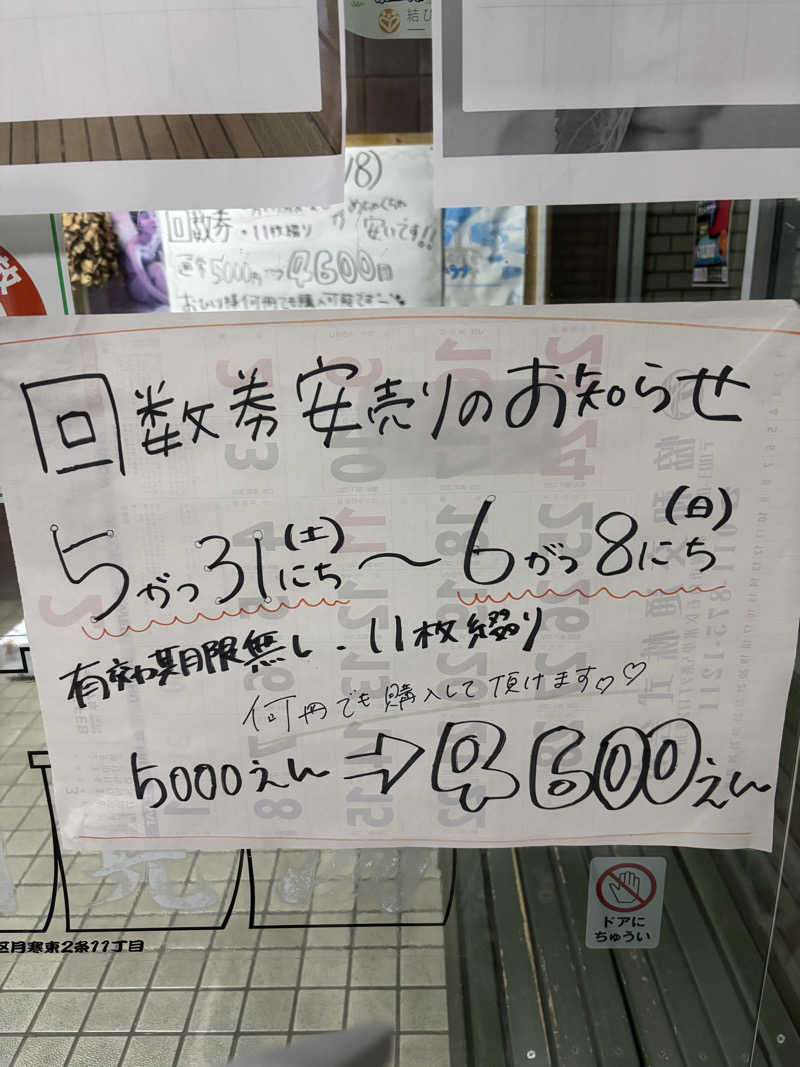 結び
回数券・11枚綴り
が
めちゃくちゃ
安いです!!
通常5000円→4600円
回数券安売りのお知らせ
5がつ31にち(土)〜6がつ8にち(日)
有効期限無し・11枚綴り
何冊でも購入して頂けます♡♡
5000えん⇒4600えん
ドアに
ちゅうい
区月寒東2条11丁目